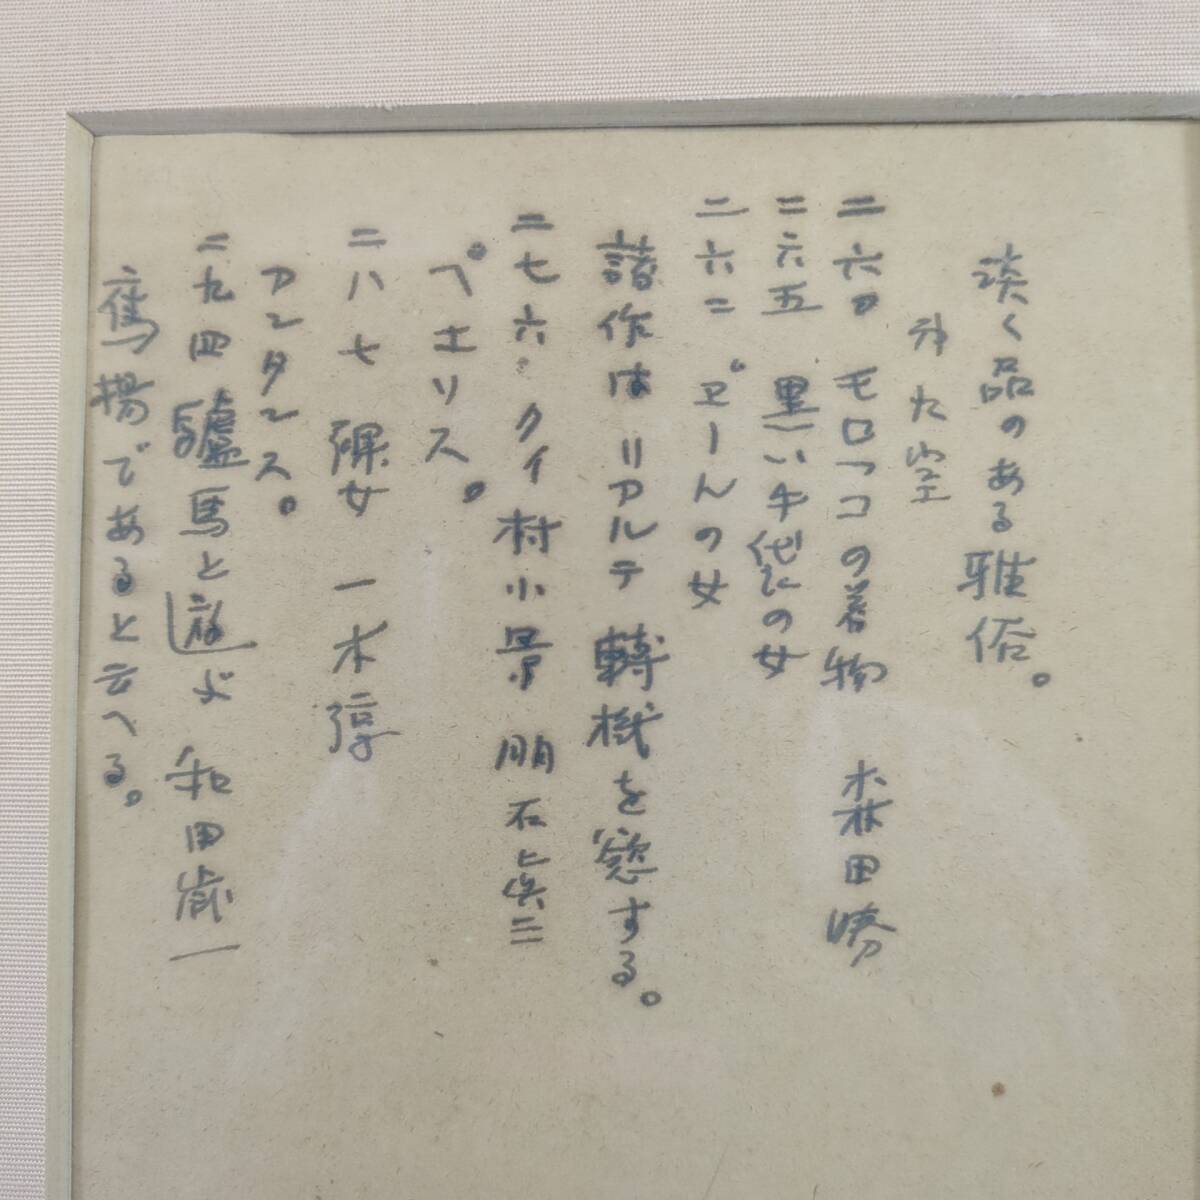 淡く品のある雅俗。
二六四 モロッコの着物 森田勝
二六五 黒い牛
の女
二六二 ヹールの女
諸作はリアルテ 轉機を窓する。
二七六 クイ村小景 朋石眞三
ペエリス。
二八七 裸女 一木淳
アンタンス。
二九四 驢馬と遊ぶ 和田歳一
鷹揚であると云へる。